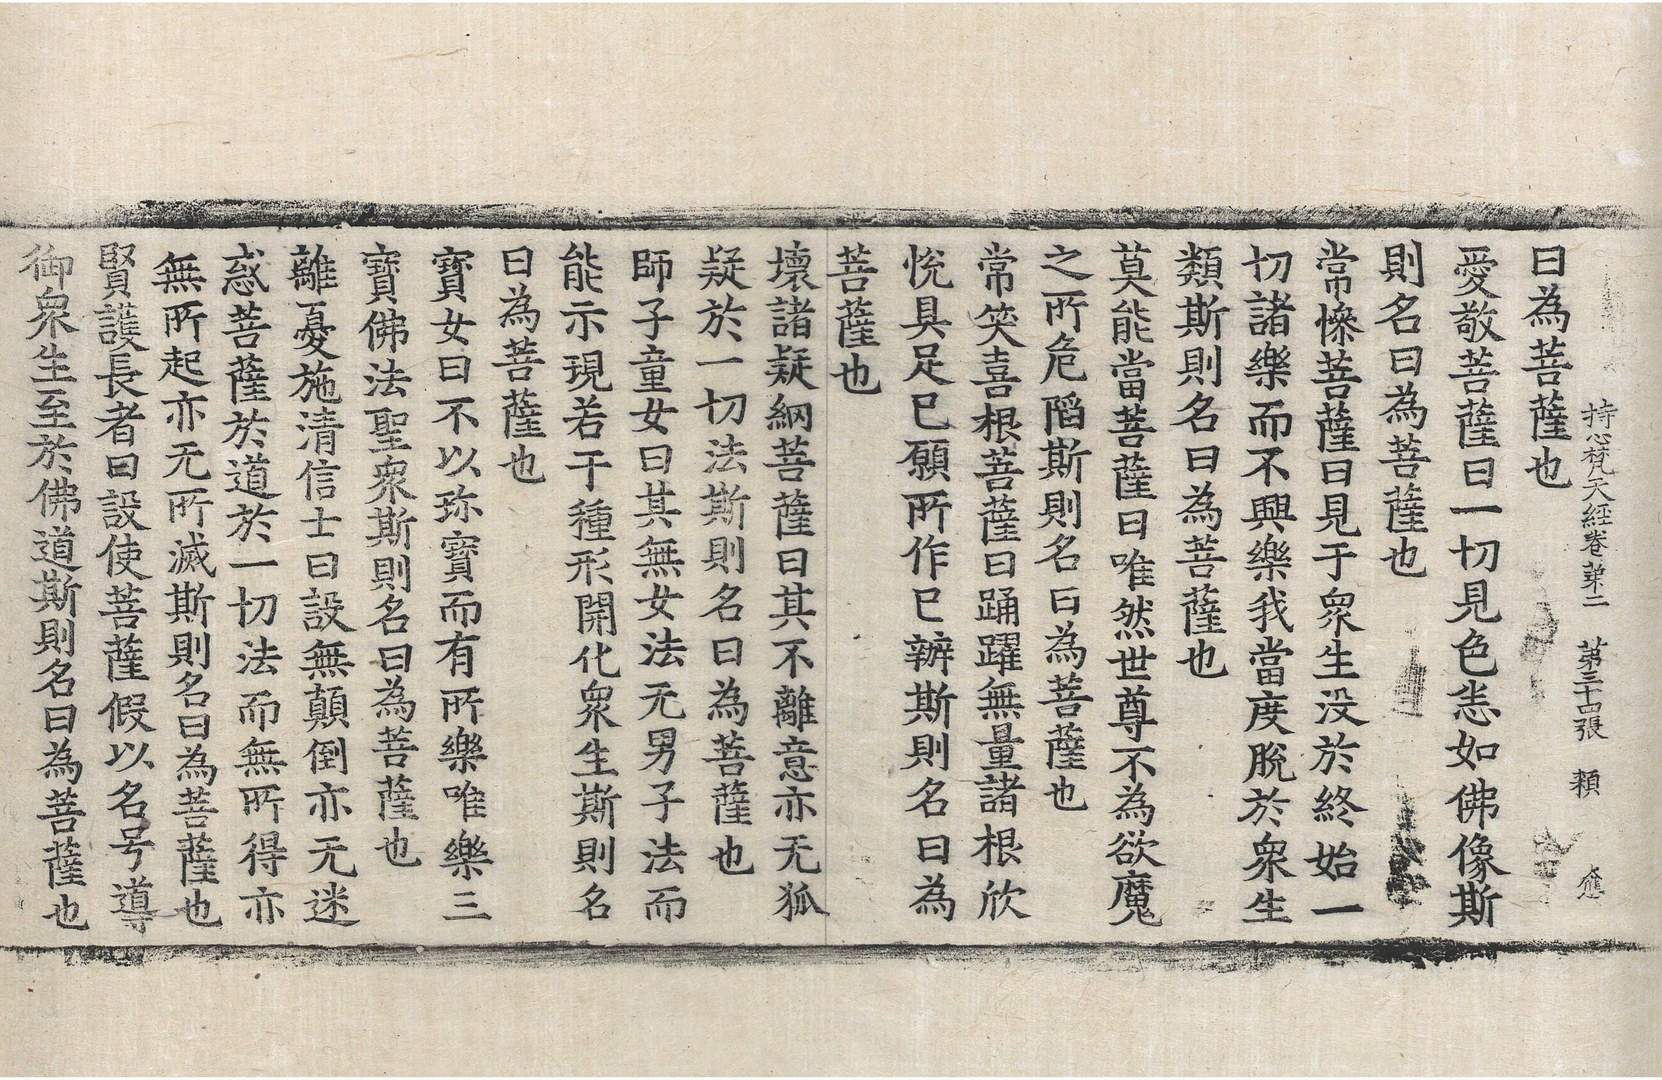 持心梵天經卷第二　第三十四張　賴
曰為菩薩也
愛敬菩薩曰一切見色恙如佛像斯
則名曰為菩薩也
常慘菩薩曰見于衆生没於終始一
切諸樂而不興樂我當度脫於衆生
類斯則名曰為菩薩也
莫能當菩薩曰唯然世尊不為欲魔
之所危陷斯則名曰為菩薩也
常笑喜根菩薩曰踊躍無量諸根欣
悅具足已願所作已辦斯則名曰為
菩薩也
壞諸疑網菩薩曰其不離意亦无狐
疑於一切法斯則名曰為菩薩也
師子童女曰其無女法无男子法而
能示現若干種形開化衆生斯則名
曰為菩薩也
寶女曰不以珎寶而有所樂唯樂三
寶佛法聖衆斯則名曰為菩薩也
離憂施清信士曰設無顛倒亦无迷
惑菩薩於道於一切法而無所得亦
無所起亦无所滅斯則名曰為菩薩也
賢護長者曰設使菩薩假以名号導
御衆生至於佛道斯則名曰為菩薩也